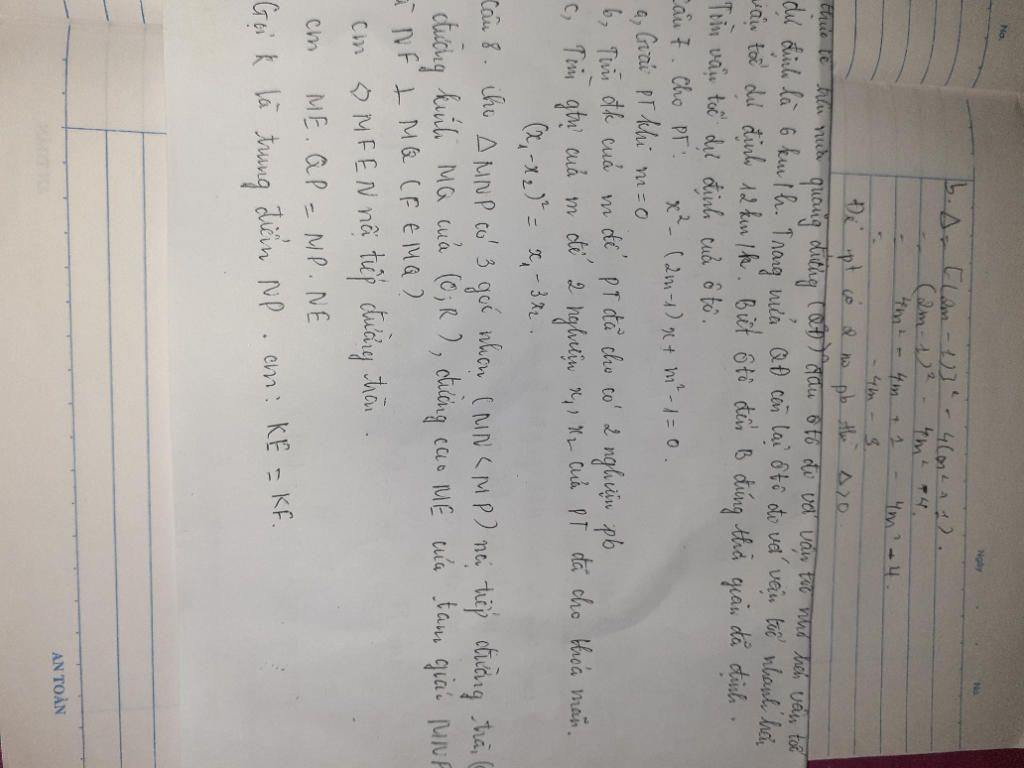 No.
Ngày
No
b. Δ = [-(2m - 1)]² - 4(m² + 1).
= (2m - 1)² - 4m² + 4.
= 4m² - 4m + 1 - 4m² + 4.
= - 4m - 3
Để pt có 2 no pb thì Δ>0.
quãng đường (QĐ) đầu ô tô đi với vận tốc nhỏ hơn vận tốc
dự định là 6 km/h. Trong nửa QĐ còn lại ô tô đi với vận tốc nhanh hơn
vận tốc dự định 12 km/h. Biết ô tô đến B đúng thời gian đã định.
Tìm vận tốc dự định của ô tô.
Câu 7. Cho PT: x² - (2m-1)x + m² - 1 = 0.
a, Giải PT khi m=0
b, Tìm đk của m để PT đã cho có 2 nghiệm pb
c, Tìm gtrị của m để 2 nghiệm x₁, x₂ của PT đã cho thoả mãn.
(x₁ - x₂)² = x₁ - 3x₂.
Câu 8. Cho Δ MNP có 3 góc nhọn (MN < MP) nội tiếp đường tròn
đường kính MQ của (O;R), đường cao ME của tam giác MNP
NF ⊥ MQ (F ∈ MQ)
cm ◇ MFEN nội tiếp đường tròn.
cm ME. QP = MP. NE
Gọi K là trung điểm NP. cm: KE = KF.
AN TOÀN